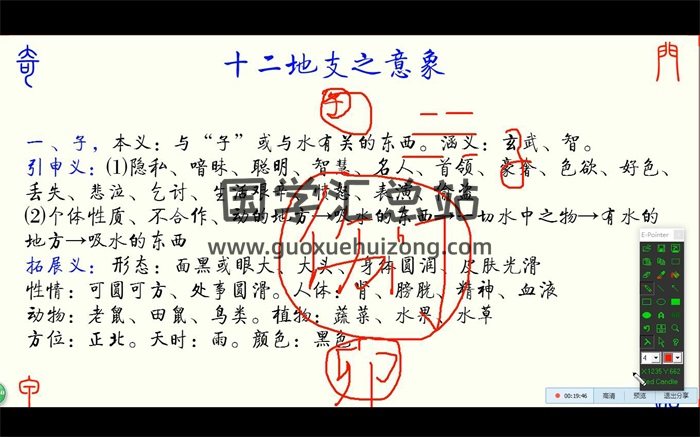 奇
十二地支之意象
門
子
一、子，本义：与“子”或与水有关的东西。涵义：玄武、智。
引申义：(1)隐私、喑昧、聪明、智慧、名人、首领、豪奢、色欲、好色、
丢失、悲泣、乞讨、生活
表演、偷盗
国学汇总站
(2)个体性质、不合作、动的地方→吸水的东西→一切水中之物→有水的
地方→吸水的东西
www.guoxuehuizong.com
拓展义：形态：面黑或眼大、大头、身体圆润、皮肤光滑
性情：可圆可方、处事圆滑。人体：肾、膀胱、精神、血液
动物：老鼠、田鼠、鸟类。植物：蔬菜、水果、水草
方位：正北。天时：雨。颜色：黑色
卯
E-Pointer
4
X:1235 Y:662
Red Candle
00:19:46
高清
预览
退出分享